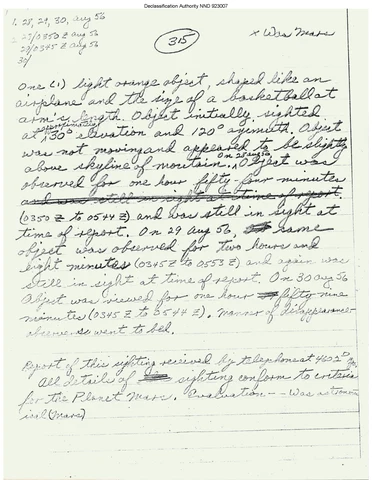 Declassification Authority NND 923007
1. 28, 29, 30, Aug 56
2. 28/0350 Z Aug 56
29/0345 Z Aug 56
30/
315
x Was Mars
One (1) light orange object, shaped like an
airplane and the size of a basketball at
arm's length. Object initially sighted
at approximately 30° elevation and 120° azimuth. Object
was not moving and appeared to be slightly
above skyline of mountain. On 28 Aug 56 Object was
observed for one hour fifty-four minutes
and was still in sight at time of report.
(0350 Z to 0544 Z) and was still in sight at
time of report. On 29 Aug 56, same
object was observed for two hours and
eight minutes (0345 Z to 0553 Z) and again was
still in sight at time of report. On 30 Aug 56
Object was viewed for one hour fifty nine
minutes (0345 Z to 0544 Z). Manner of disappearance-
observers went to bed.
Report of this sighting received by telephone at 4602d
All details of sighting conform to criteria
for the Planet Mars. Evaluation -- Was astronom-
ical (Mars)